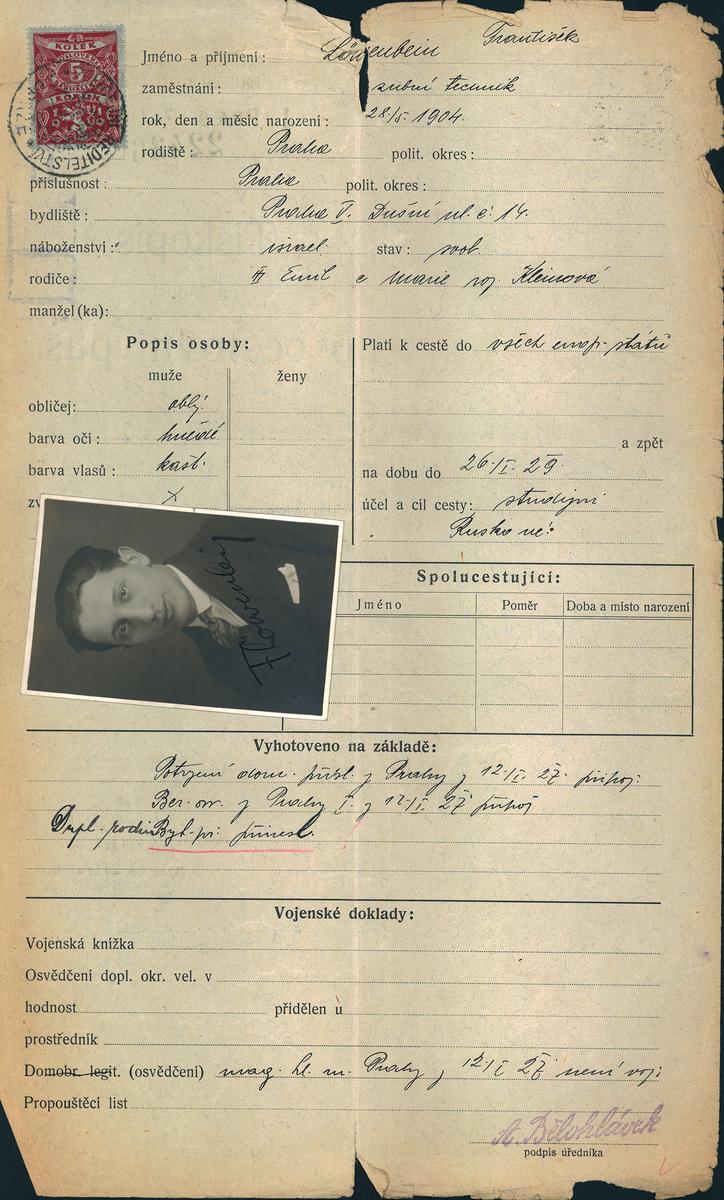 KOLEK
5
KORUN
ŘEDITELSTVÍ
Jméno a příjmení: Löwenbein František
zaměstnání: zubní technik
rok, den a měsíc narození: 28/5. 1904.
rodiště: Praha polit. okres:
příslušnost: Praha polit. okres:
bydliště: Praha V. Dušní ul. č. 14.
náboženství: israel. stav: svob.
rodiče: Emil a Marie roz. Kleinová
manžel(ka):
Popis osoby:
muže ženy
obličej: oblý.
barva očí: hnědé
barva vlasů: kašt.
zv
Platí k cestě do všech evrop. států
a zpět
na dobu do 26./I. 29.
účel a cíl cesty: studijní
Rusko ne!
FLowenbein
Spolucestující:
Jméno Poměr Doba a místo narození
Vyhotoveno na základě:
Potvrzení dom. přísl. z Prahy z 12./I. 27. připoj.
Ber. z Prahy I. z 12/I. 27 připoj
Byt. př. přinesl.
Vojenské doklady:
Vojenská knížka
Osvědčení dopl. okr. vel. v
hodnost přidělen u
prostředník
Domobr. legit. (osvědčení) mag. hl. m. Prahy z 12./I. 27 není voj.
Propouštěcí list
A. Bělohlávek
podpis úředníka